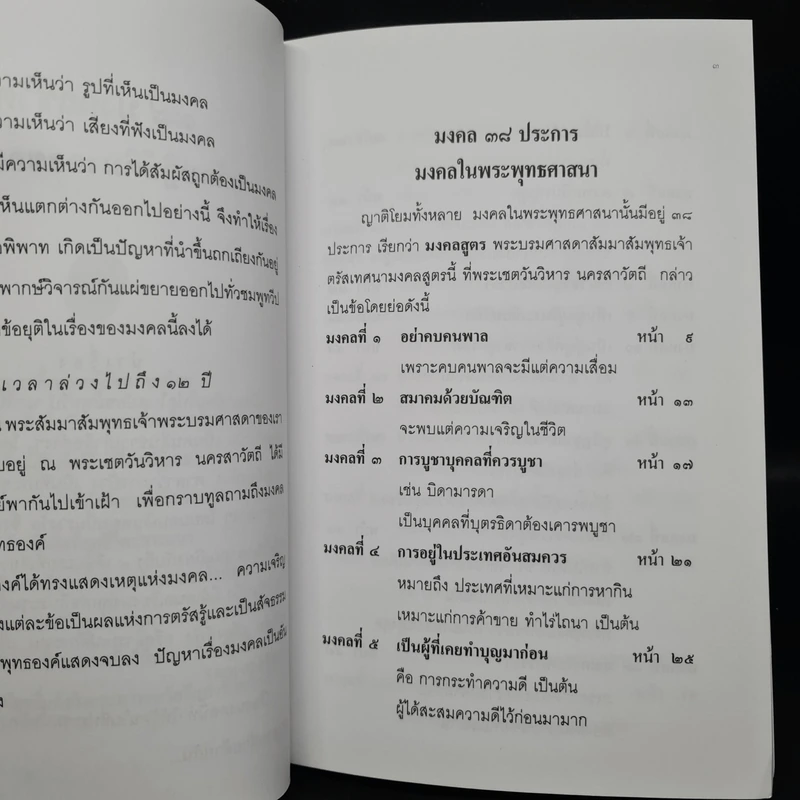 วามเห็นว่า รูปที่เห็นเป็นมงคล
วามเห็นว่า เสียงที่ฟังเป็นมงคล
มีความเห็นว่า การได้สัมผัสถูกต้องเป็นมงคล
เห็นแตกต่างกันออกไปอย่างนี้ จึงทำให้เรื่อง
พิพาท เกิดเป็นปัญหาที่นำขึ้นถกเถียงกันอยู่
พากษ์วิจารณ์กันแผ่ขยายออกไปทั่วชมพูทวีป
ข้อยุติในเรื่องของมงคลนี้ลงได้
เวลาล่วงไปถึง ๑๒ ปี
พระสัมมาสัมพุทธเจ้าพระบรมศาสดาของเรา
บอยู่ ณ พระเชตวันวิหาร นครสาวัตถี ได้มี
พากันไปเข้าเฝ้า เพื่อกราบทูลถามถึงมงคล
ทธองค์
งค์ได้ทรงแสดงเหตุแห่งมงคล... ความเจริญ
แต่ละข้อเป็นผลแห่งการตรัสรู้และเป็นสัจธรรม
พุทธองค์แสดงจบลง ปัญหาเรื่องมงคลเป็นอัน
๓
มงคล ๓๘ ประการ
มงคลในพระพุทธศาสนา
ญาติโยมทั้งหลาย มงคลในพระพุทธศาสนานั้นมีอยู่ ๓๘
ประการ เรียกว่า มงคลสูตร พระบรมศาสดาสัมมาสัมพุทธเจ้า
ตรัสเทศนามงคลสูตรนี้ ที่พระเชตวันวิหาร นครสาวัตถี กล่าว
เป็นข้อโดยย่อดังนี้
มงคลที่ ๑ อย่าคบคนพาล หน้า ๙
เพราะคบคนพาลจะมีแต่ความเสื่อม
มงคลที่ ๒ สมาคมด้วยบัณฑิต หน้า ๑๓
จะพบแต่ความเจริญในชีวิต
มงคลที่ ๓ การบูชาบุคคลที่ควรบูชา หน้า ๑๗
เช่น บิดามารดา
เป็นบุคคลที่บุตรธิดาต้องเคารพบูชา
มงคลที่ ๔ การอยู่ในประเทศอันสมควร หน้า ๒๑
หมายถึง ประเทศที่เหมาะแก่การหากิน
เหมาะแก่การค้าขาย ทำไร่ไถนา เป็นต้น
มงคลที่ ๕ เป็นผู้ที่เคยทำบุญมาก่อน หน้า ๒๕
คือ การกระทำความดี เป็นต้น
ผู้ได้สะสมความดีไว้ก่อนมามาก